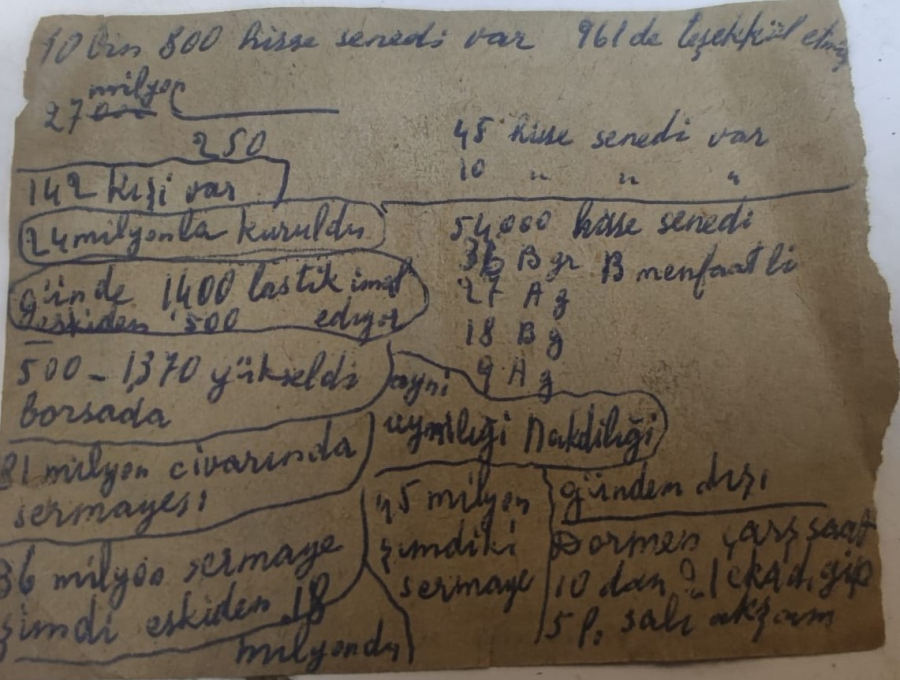 10 bin 800 hisse senedi var 961 de teşekkül etmiş
milyon
27
250
45 hisse senedi var
10 " " "
142 kişi var
24 milyonla kuruldu
54,000 hisse senedi
36 B gr B menfaatli
27 A g
18 B g
9 A g
günde 1400 lastik imal
eskiden 500 ediyor
500 - 1370 yükseldi
borsada
ayni
ayniliği Nakdiliği
81 milyon civarında
sermayesi
45 milyon
şimdiki
sermaye
36 milyon sermaye
şimdi eskiden 18
milyondu
gündem dışı
Dormen çarş saat
10 dan
5 P. salı akşam